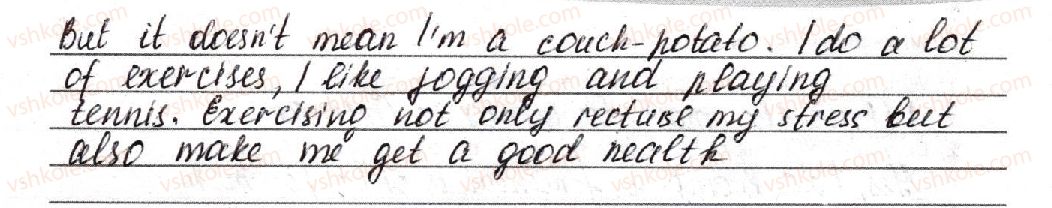 But it doesn't mean I'm a couch-potato. I do a lot
of exercises, I like jogging and playing
tennis. Exercising not only rectuse my stress but
also make me get a good health